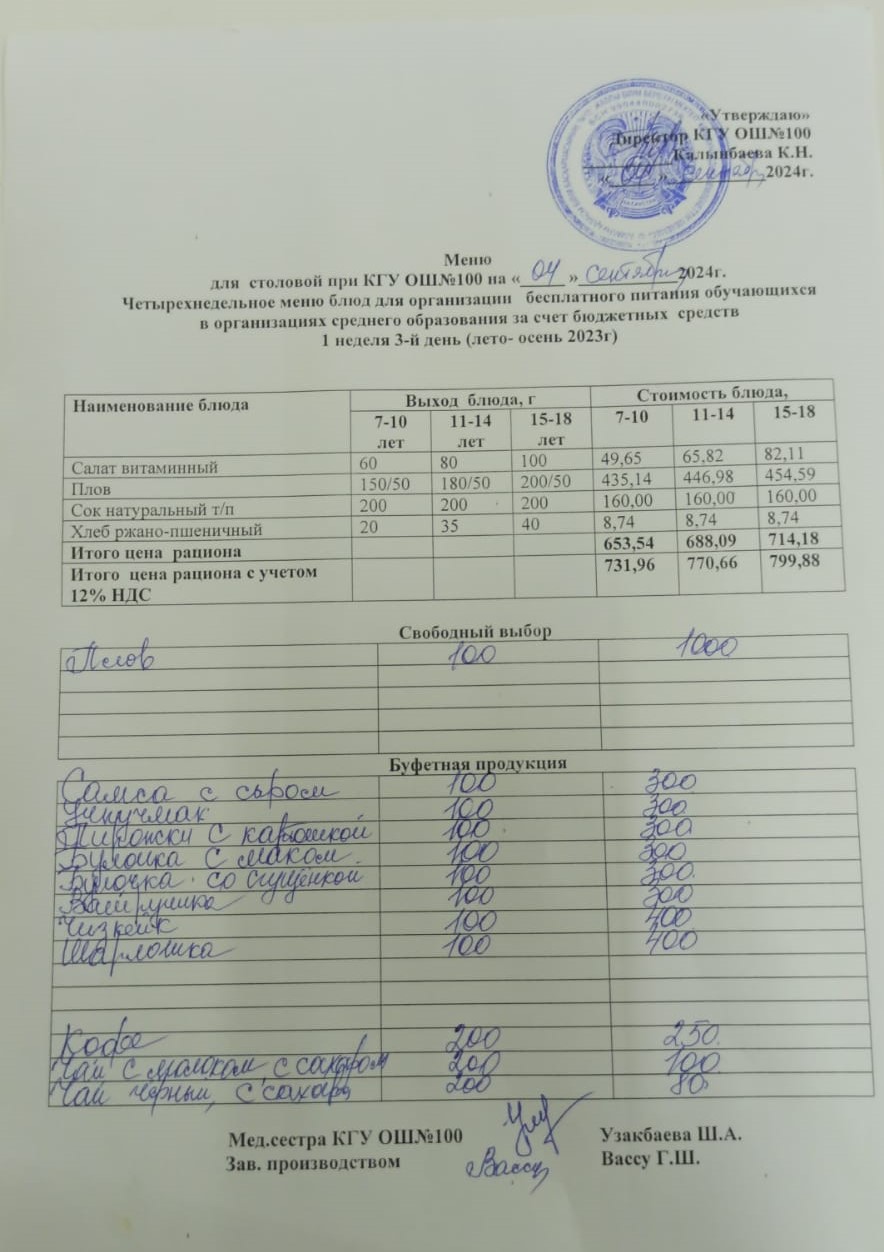 «Утверждаю»
Директор КГУ ОШ№100
Калынбаева К.Н.
« 04 » сентябр 2024г.
Меню
для столовой при КГУ ОШ№100 на « 04 » сентябрь 2024г.
Четырехнедельное меню блюд для организации бесплатного питания обучающихся
в организациях среднего образования за счет бюджетных средств
1 неделя 3-й день (лето- осень 2023г)
Наименование блюда Выход блюда, г Стоимость блюда,
7-10 лет 11-14 лет 15-18 лет 7-10 11-14 15-18
Салат витаминный 60 80 100 49,65 65,82 82,11
Плов 150/50 180/50 200/50 435,14 446,98 454,59
Сок натуральный т/п 200 200 200 160,00 160,00 160,00
Хлеб ржано-пшеничный 20 35 40 8,74 8,74 8,74
Итого цена рациона 653,54 688,09 714,18
Итого цена рациона с учетом 731,96 770,66 799,88
12% НДС
Свободный выбор
Плов 100 1000
Буфетная продукция
Самса с сыром 100 300
Учпучмак 100 300
Пирожки с картошкой 100 300
Булочка с маком 100 300
Булочка со сгущёнкой 100 300
Ватрушка 100 300
Чизкейк 100 400
Шарлотка 100 400
Кофе 200 250
Чай с молоком, с сахаром 200 100
Чай черный, с сахар 200 80
Мед.сестра КГУ ОШ№100 Узакбаева Ш.А.
Зав. производством Вассу Вассу Г.Ш.